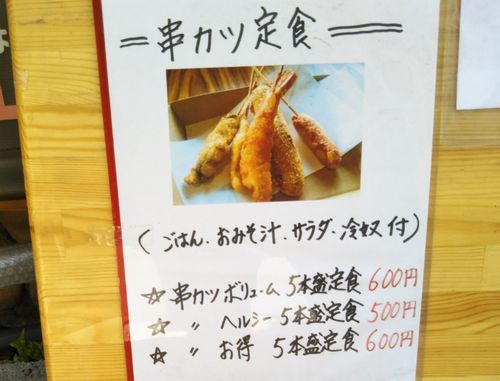 串カツ定食
(ごはん、おみそ汁、サラダ、冷奴付)
☆串カツボリューム5本盛定食600円
☆〃ヘルシー5本盛定食500円
☆〃お得5本盛定食600円